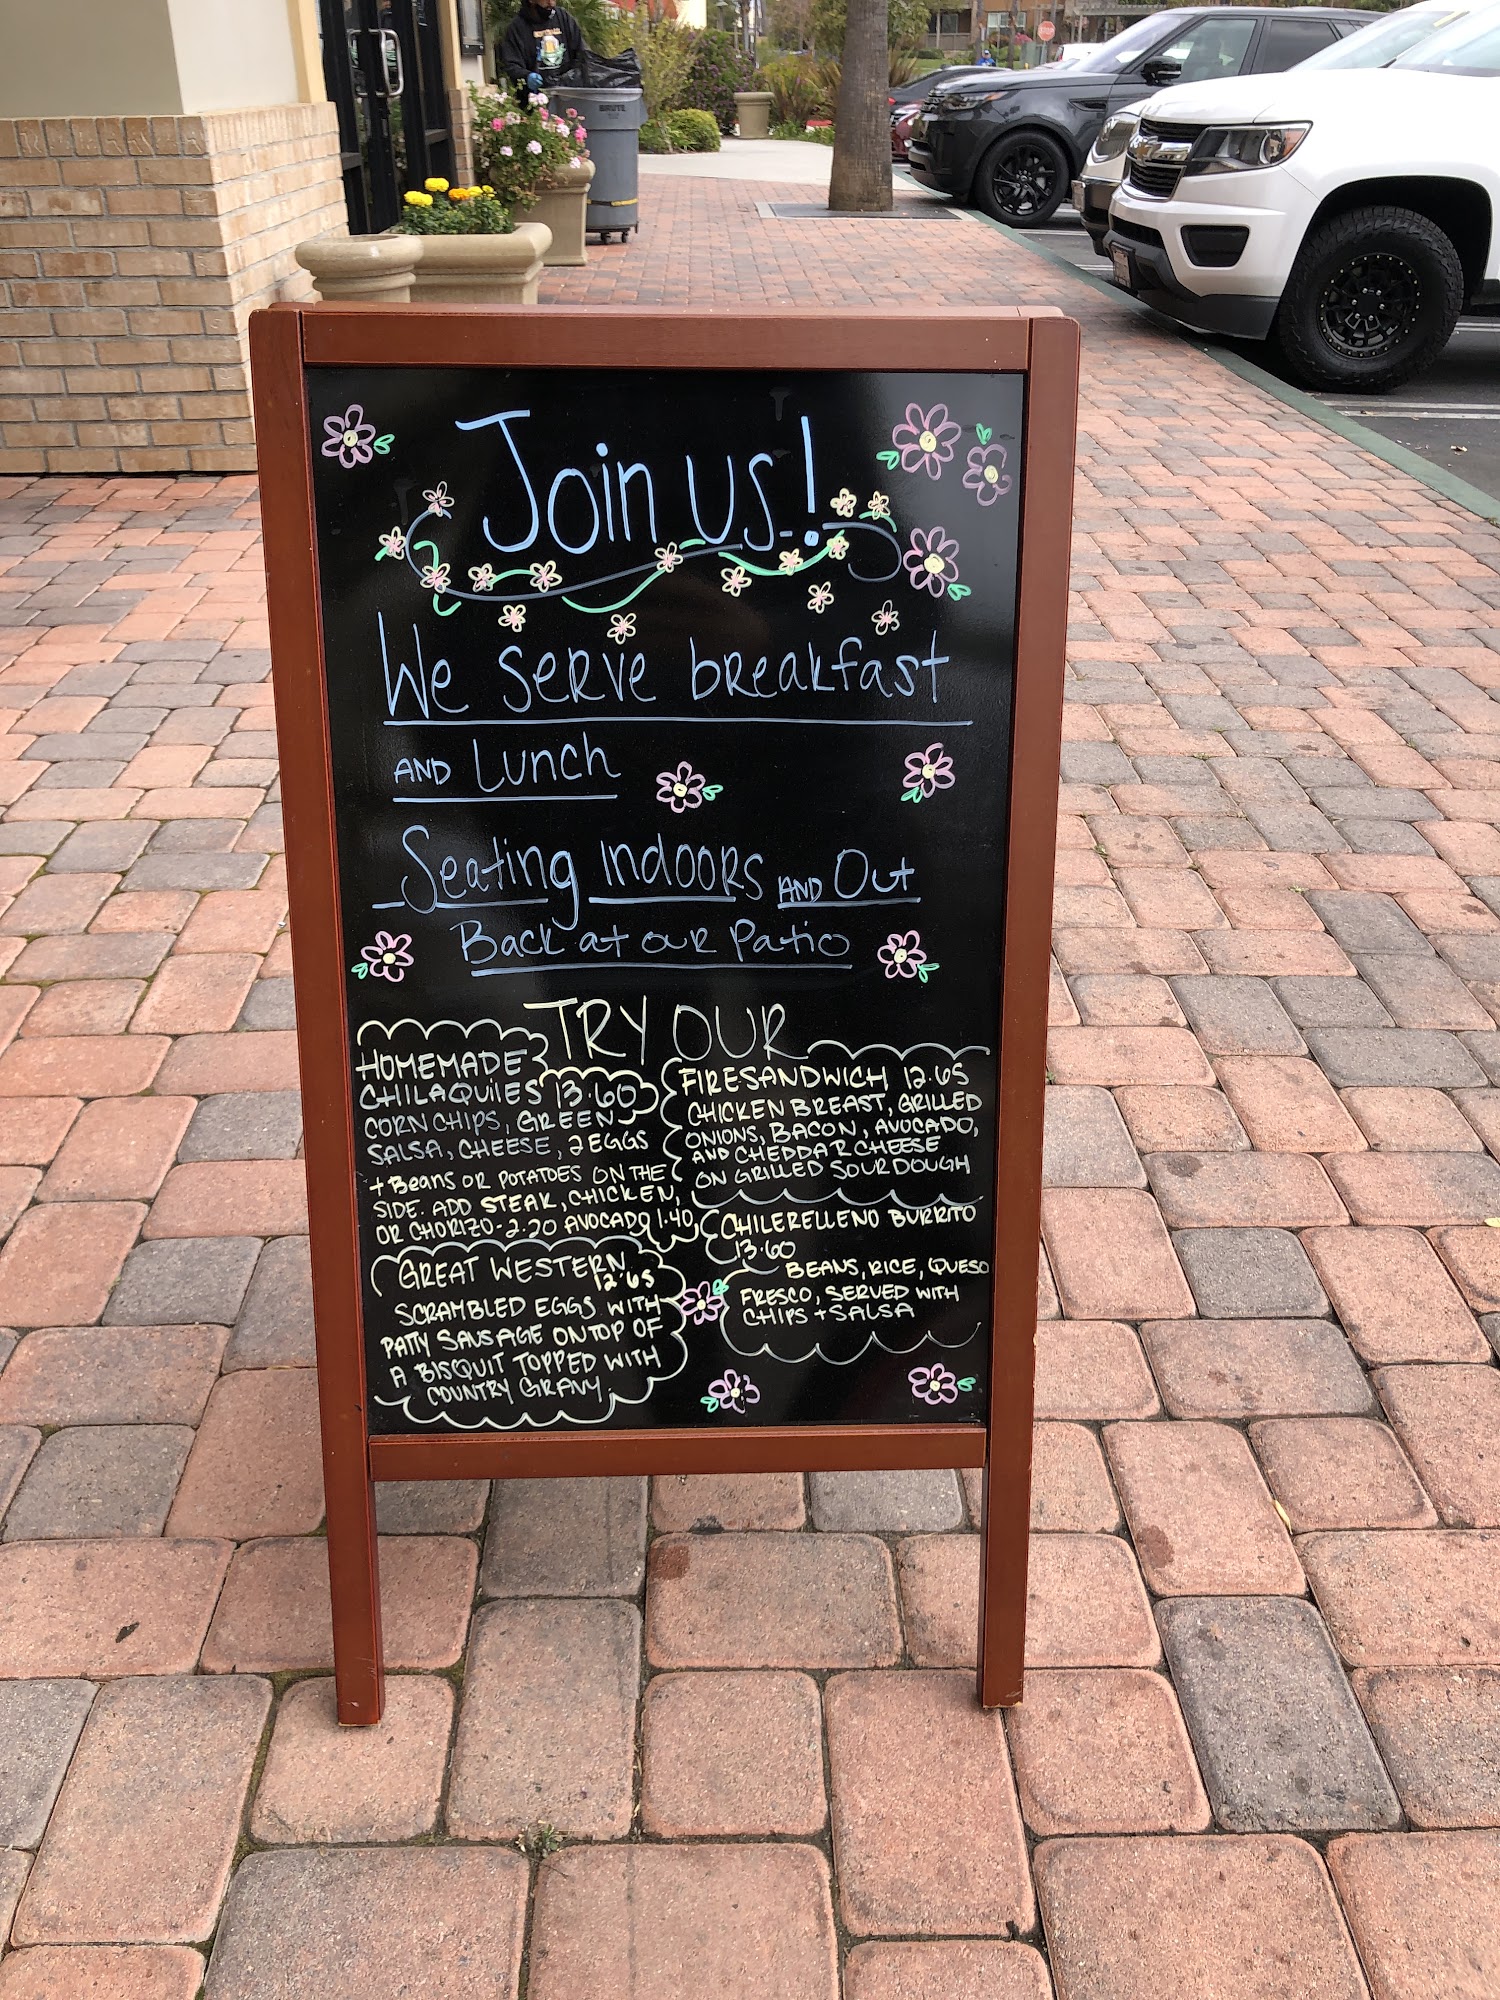 Join us!
We serve breakfast
and Lunch
Seating indoors and Out
Back at our Patio
TRY OUR
HOMEMADE
CHILAQUILES 13.60
CORN CHIPS, GREEN
SALSA, CHEESE, 2 EGGS
+ Beans OR POTATOES ON THE
SIDE. ADD STEAK, CHICKEN,
OR CHORIZO - 2.20 AVOCADO 1.40
GREAT WESTERN
12.65
SCRAMBLED EGGS WITH
PATTY SAUSAGE ON TOP OF
A BISQUIT TOPPED WITH
COUNTRY GRAVY.
FIRE SANDWICH 12.65
CHICKEN BREAST, GRILLED
ONIONS, BACON, AVOCADO,
AND CHEDDAR CHEESE
ON GRILLED SOURDOUGH
CHILE RELLENO BURRITO
13.60
BEANS, RICE, QUESO
FRESCO, SERVED WITH
CHIPS + SALSA
BRUTE